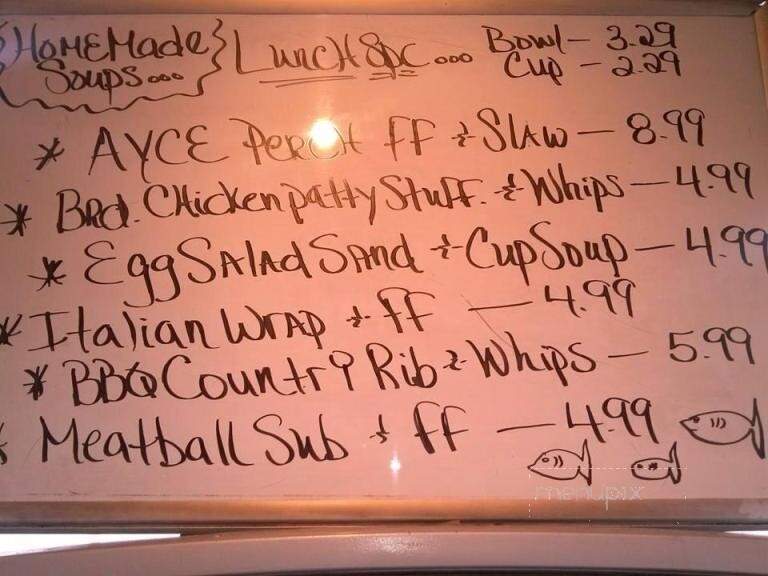 HomeMade Soups... Lunch Spc... Bowl - 3.29
Cup - 2.29
* AYCE Perch FF & Slaw - 8.99
* Brd. Chicken patty Stuff. & Whips - 4.99
* Egg Salad Sand & Cup Soup - 4.99
* Italian Wrap & ff - 4.99
* BBQ Country Rib & Whips - 5.99
* Meatball Sub & ff - 4.99
menupix